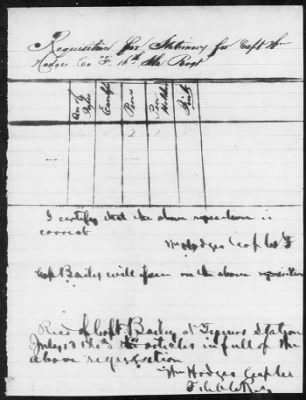 Requisition for Stationery for Capt Wm
Hodges Co F. 16th Ala Regt
Envlps
Pens
Pen
holders
Ink
2
I certify that the above requisition is
correct
Wm Hodges Capt Co F
Capt Bailey will issue on the above requisition
Recd of Capt Bailey at Station
July 13 1863 the articles in full of the
above requisition
Wm Hodges Capt
F 16 Ala Reg